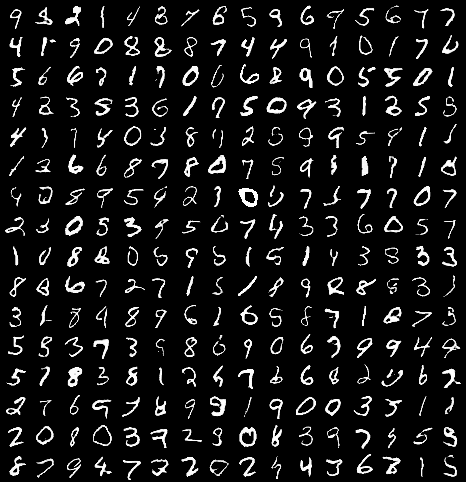 9 8 2 1 4 3 7 6 5 9 6 9 5 6 7 7
4 1 9 0 8 8 8 7 4 4 9 1 0 1 7 6
5 6 6 7 1 7 0 0 6 8 9 0 5 5 0 1
4 2 3 5 3 6 1 7 5 0 9 3 1 2 5 8
4 3 7 4 0 3 8 9 2 5 9 9 5 9 1 5
1 3 6 6 8 7 8 0 7 5 9 5 1 7 1 0
9 0 8 9 5 9 2 3 0 0 7 5 7 7 0 7
2 3 0 5 3 9 5 0 7 4 3 3 6 0 5 7
1 0 8 8 0 5 9 5 1 5 1 4 3 8 3 3
8 8 6 7 2 7 1 5 1 8 9 2 8 8 3 3
3 1 8 4 8 9 6 1 6 5 8 7 1 8 7 3
5 5 3 7 3 9 8 6 9 0 6 3 9 9 4 9
5 7 8 3 8 1 2 4 7 6 6 8 2 0 6 2
2 7 6 9 7 8 9 9 1 9 0 0 3 5 1 8
2 0 8 0 3 7 2 9 0 8 3 9 7 5 5 9
8 7 9 4 7 7 2 0 2 4 4 3 6 8 1 5